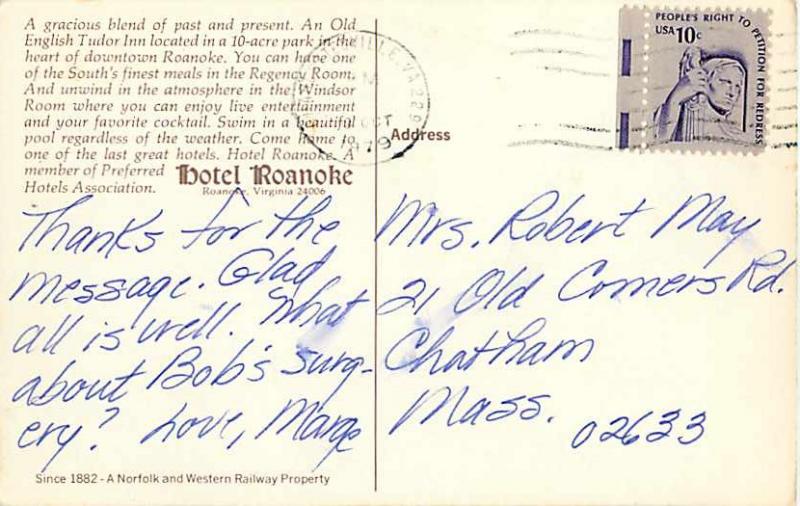 A gracious blend of past and present. An Old
English Tudor Inn located in a 10-acre park in the
heart of downtown Roanoke. You can have one
of the South's finest meals in the Regency Room.
And unwind in the atmosphere in the Windsor
Room where you can enjoy live entertainment
and your favorite cocktail. Swim in a beautiful
pool regardless of the weather. Come home to
one of the last great hotels. Hotel Roanoke. A
member of Preferred
Hotels Association.
Hotel Roanoke
Roanoke, Virginia 24006
Thanks for the
message. Glad
all is well. What
about Bob's surg-
ery? Love, Marge
Since 1882 - A Norfolk and Western Railway Property
VILLE, VA 229
OCT
1979
PEOPLE'S RIGHT TO PETITION FOR REDRESS
USA 10c
Address
Mrs. Robert May
21 Old Comers Rd.
Chatham
Mass.
02633